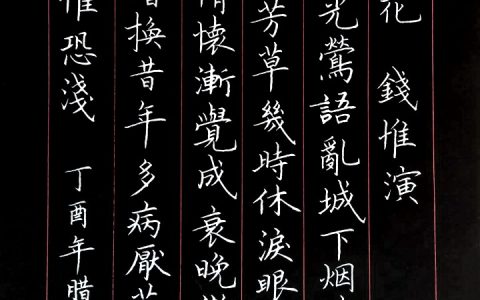 花 錢惟演
光鶯語亂城下烟
芳草幾時休淚眼
情懷漸覺成衰晚
暗換昔年多病厭芳
惟恐淺 丁酉年腊